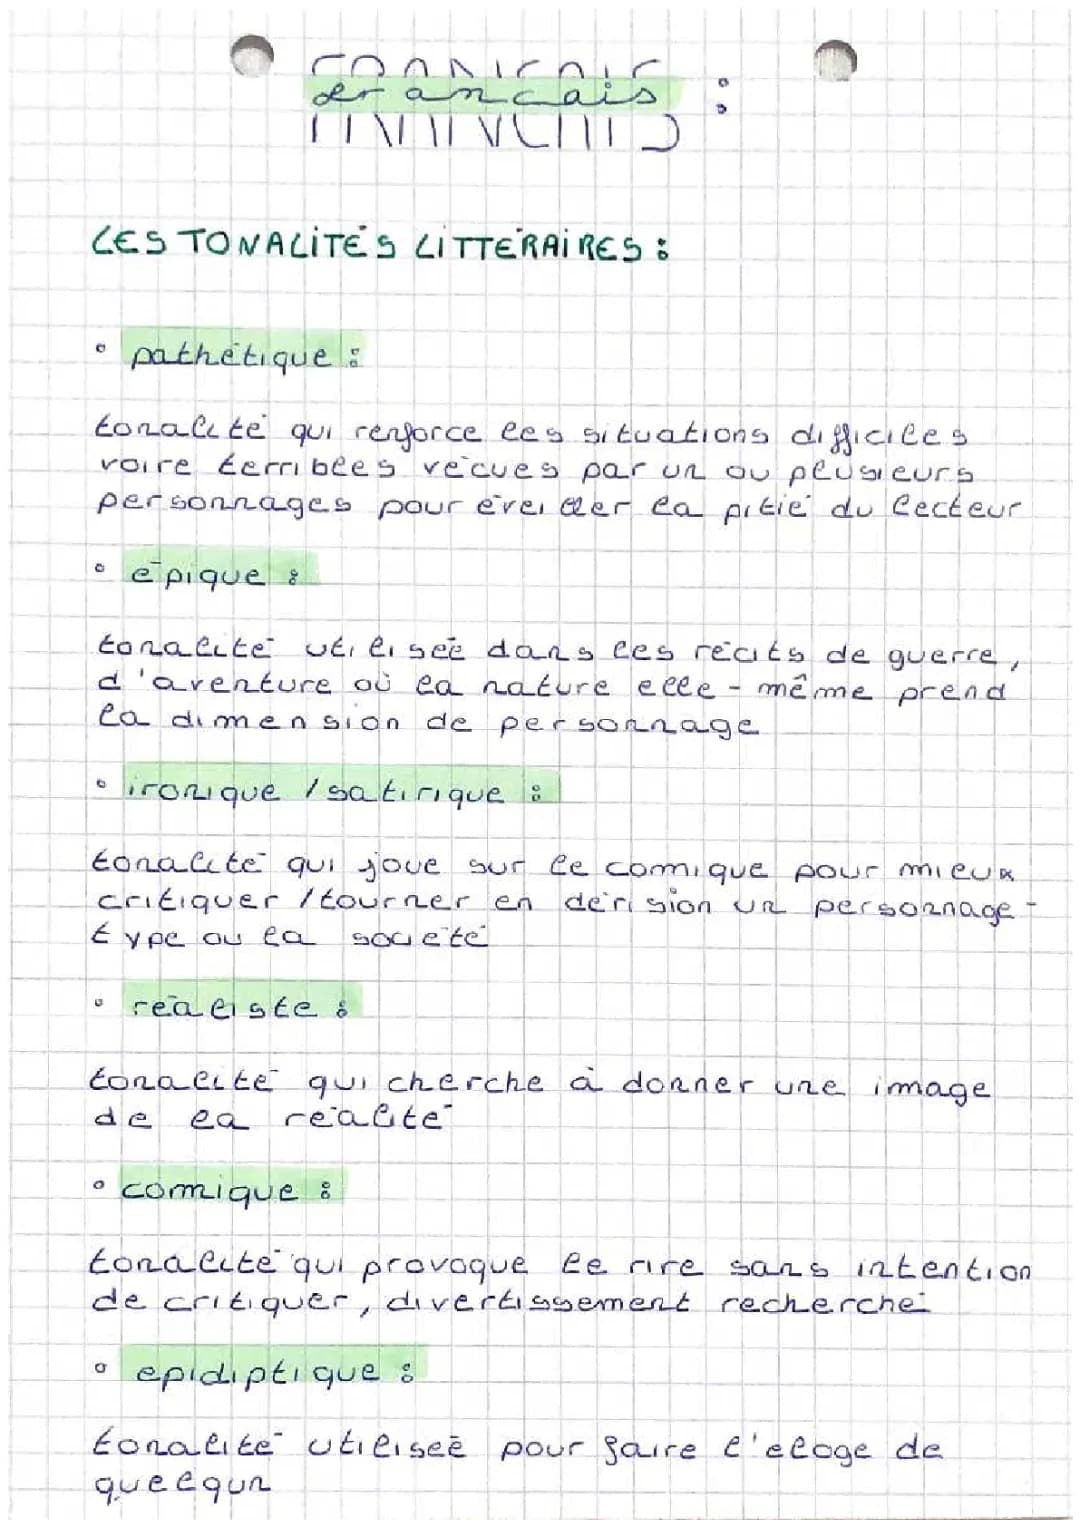 FRANÇAIS
français :
LES TONALITÉS LITTÉRAIRES :
• pathétique :
tonalité qui renforce les situations difficiles
voire terribles vécues par un ou plusieurs
personnages pour éveiller la pitié du lecteur
• épique :
tonalité utilisée dans les récits de guerre,
d'aventure où la nature elle-même prend
la dimension de personnage
• ironique / satirique :
tonalité qui joue sur le comique pour mieux
critiquer / tourner en dérision un personnage-
type ou la société
• réaliste :
tonalité qui cherche à donner une image
de la réalité
• comique :
tonalité qui provoque le rire sans intention
de critiquer, divertissement recherché
• epidiptique :
tonalité utilisée pour faire l'eloge de
quelqun